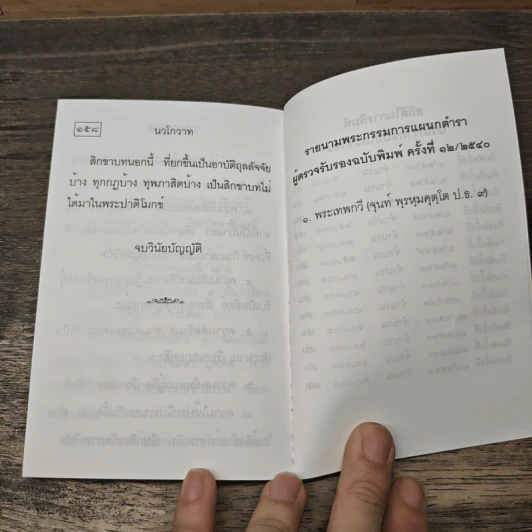 ๑๕๘
นวโกวาท
สิกขาบทนอกนี้ ที่ยกขึ้นเป็นอาบัติถุลลัจจัย
บ้าง ทุกกฏบ้าง ทุพภาสิตบ้าง เป็นสิกขาบทไม่
ได้มาในพระปาติโมกข์
จบวินัยบัญญัติ
รายนามพระกรรมการแผนกตำรา
ผู้ตรวจรับรองฉบับพิมพ์ ครั้งที่ ๑๒/๒๕๔๐
๑. พระเทพกวี (จุนท์ พฺรหฺมคุตฺโต ป.ธ. ๙)